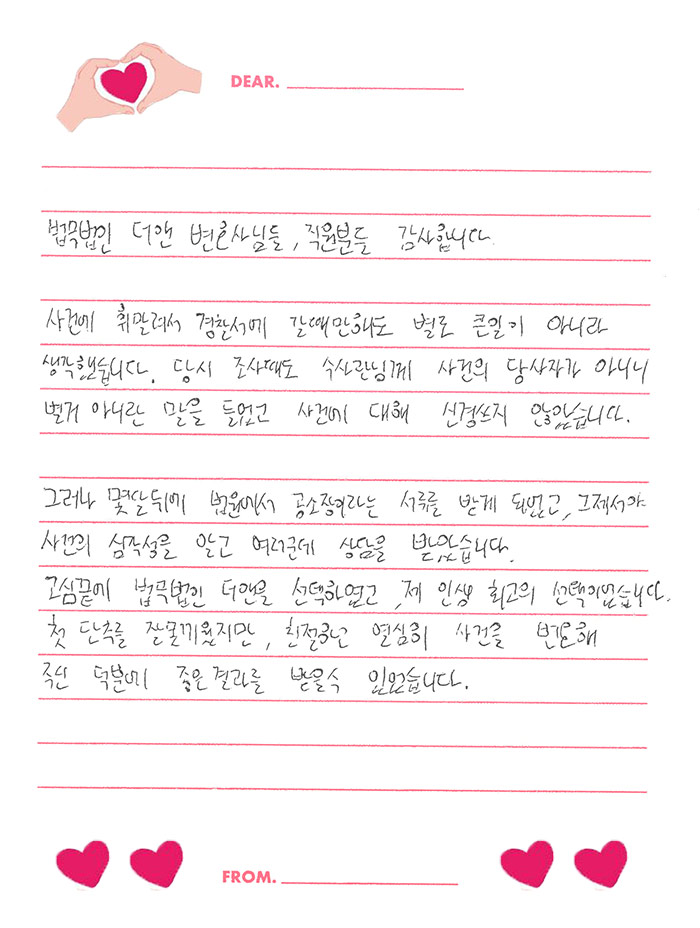 DEAR.
법무법인 더앤 변호사님들, 직원분들 감사합니다.
사건에 휘말려서 경찰서에 갈때만해도 별로 큰일이 아니라
생각했습니다. 당시 조사때도 수사관님께 사건의 당사자가 아니니
별거 아니란 말을 들었고 사건에 대해 신경쓰지 않았습니다.
그러나 몇달뒤에 법원에서 공소장이라는 서류를 받게 되었고, 그제서야
사건의 심각성을 알고 여러군데 상담을 받았습니다.
고심끝에 법무법인 더앤을 선택하였고, 제 인생 최고의 선택이었습니다.
첫 단추를 잘못끼웠지만, 친절하고 열심히 사건을 변호해
주신 덕분에 좋은결과를 받을수 있었습니다.
FROM.